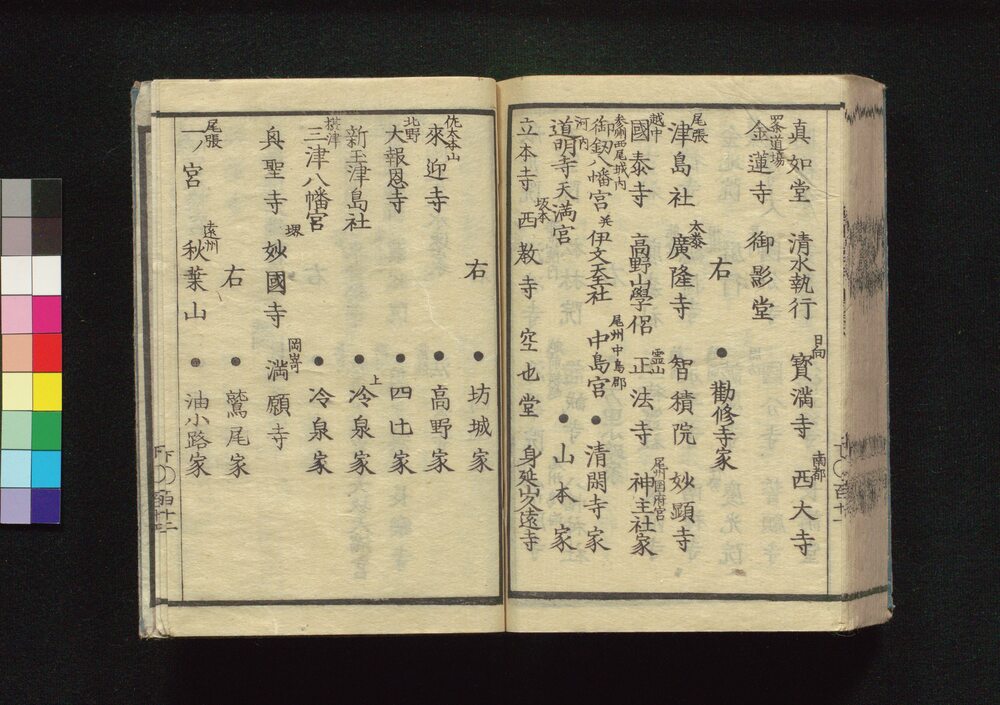 真如堂 清水執行 日向 寳滿寺 南都 西大寺
四条道場 金蓮寺 御影堂
右 ●勸修寺家
尾張 津島社 太秦 廣隆寺 智積院 妙顕寺
越中 國泰寺 高野山學侶 霊山 正法寺 尾州国府宮 神主社家
参州西尾城内 御劔八幡宮 并 伊文天王社 尾州中島郡 中島宮 ●清閑寺家
河内 道明寺天満宮 ●山本家
立本寺 坂本 西教寺 空也堂 身延山久遠寺
右 ●坊城家
佐太本山 來迎寺 ●高野家
北野 大報恩寺 ●四辻家
新玉津島社 ●上冷泉家
摂津 三津八幡宮 ●冷泉家
興聖寺 堺 妙國寺 岡嵜 満願寺
右 ●鷲尾家
尾張 一ノ宮 遠州 秋葉山 ●油小路家
下〇百十二